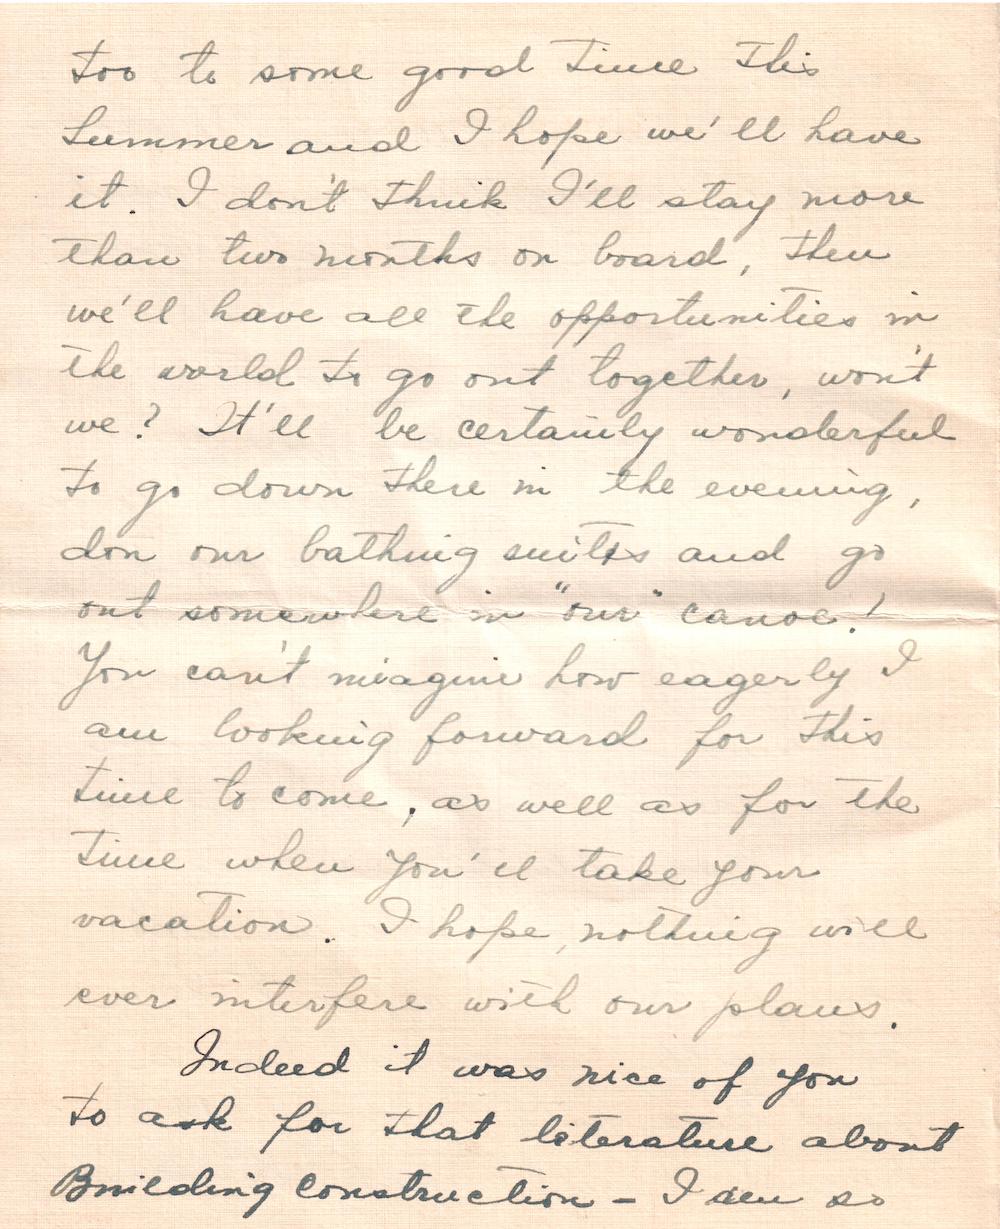 too to some good time this
Summer and I hope we'll have
it. I don't think I'll stay more
than two months on board, then
we'll have all the opportunities in
the world to go out together, won't
we? It'll be certainly wonderful
to go down there in the evening,
don our bathing suits and go
out somewhere in "our" canoe!
You can't imagine how eagerly I
am looking forward for this
time to come, as well as for the
time when you'll take your
vacation. I hope, nothing will
ever interfere with our plans.
Indeed it was nice of you
to ask for that literature about
Building Construction – I am so